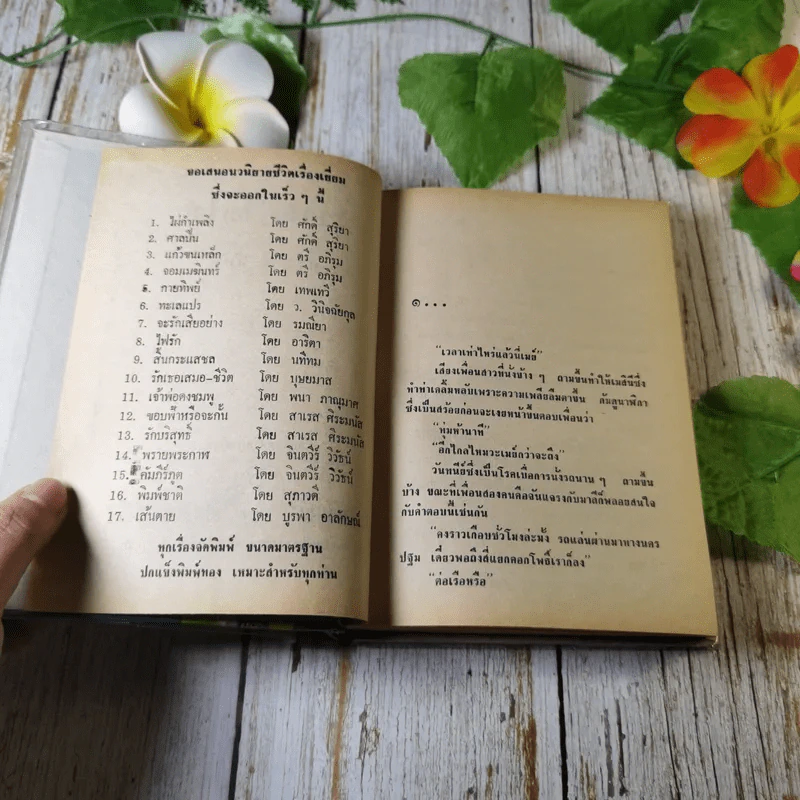 ขอเสนอนวนิยายชีวิตเรื่องเยี่ยม
ซึ่งจะออกในเร็ว ๆ นี้
1. ไฝกำเพลิง โดย ศักดิ์ สุริยา
2. ศาลปืน โดย ศักดิ์ สุริยา
3. แก้วขนเหล็ก โดย ตรี อภิรุม
4. จอมเมฆินทร์ โดย ตรี อภิรุม
5. กายทิพย์ โดย เทพเทวี
6. ทะเลแปร โดย ว. วินิจฉัยกุล
7. จะรักเสียอย่าง โดย รมณียา
8. ไฟรัก โดย อาริตา
9. สิ้นกระแสชล โดย นทีทม
10. รักเธอเสมอ-ชีวิต โดย บุษยมาส
11. เจ้าพ่อดงชมพู โดย พนา ภาณุมาศ
12. ขอบฟ้าหรือจะกั้น โดย สาเรส ศิระมนัส
13. รักบริสุทธิ์ โดย สาเรส ศิระมนัส
14. พรายพระกาฬ โดย จินตวีร์ วิวัธน์
15. คัมภีร์ภูต โดย จินตวีร์ วิวัธน์
16. พิมพ์ชาติ โดย สุภาวดี
17. เส้นตาย โดย บูรพา อาลักษณ์
ทุกเรื่องจัดพิมพ์ ขนาดมาตรฐาน
ปกแข็งพิมพ์ทอง เหมาะสำหรับทุกท่าน
๑...
“เวลาเท่าไหร่แล้วนี่เมย์”
เสียงเพื่อนสาวที่นั่งข้าง ๆ ถามขึ้นทำให้เมสินีซึ่ง
ทำท่าเคลิ้มหลับเพราะความเพลียลืมตาขึ้น ก้มดูนาฬิกา
ซึ่งเป็นสร้อยก่อนจะเงยหน้าขึ้นตอบเพื่อนว่า
“ทุ่มห้านาที”
“อีกไกลไหมวะเมย์กว่าจะถึง”
วันทนีย์ซึ่งเป็นโรคเบื่อการนั่งรถนาน ๆ ถามขึ้น
บ้าง ขณะที่เพื่อนสองคนคือจันแจรงกับมาลีก็พลอยสนใจ
กับคำตอบนี้เช่นกัน
“คงราวเกือบชั่วโมงล่ะมั้ง รถแล่นผ่านมาทางนคร
ปฐม เดี๋ยวพอถึงสี่แยกดอกโพธิ์เราก็ลง”
“ต่อเรือหรือ”